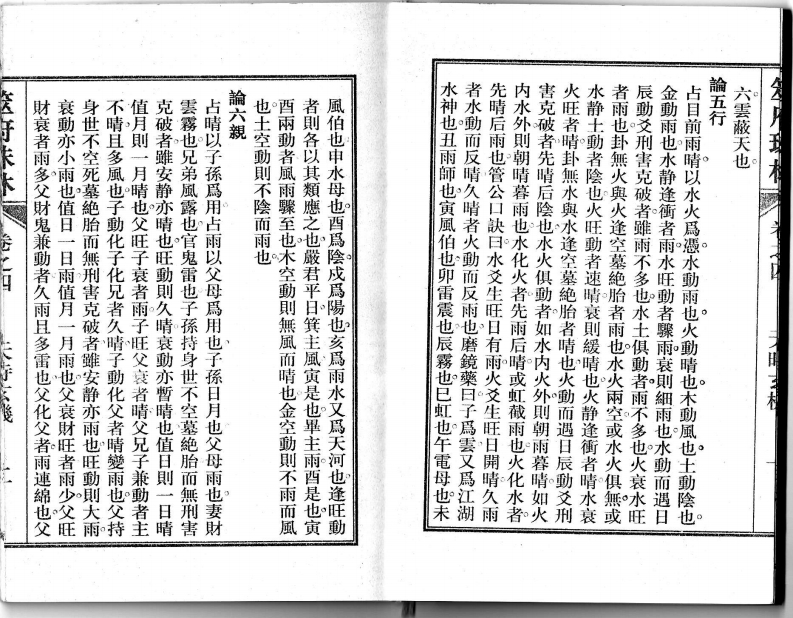 六雲蔽天也。
論五行
占目前雨晴。以水火爲憑。水動雨也。火動晴也。木動風也。土動陰也。
金動雨也。水静逢衝者雨。水旺動者驟雨。衰則細雨也。水動而遇日
辰動爻刑害克破者。雖雨不多也。水土俱動者。雨不多也。火衰水旺
者雨也。卦無火與火逢空墓絶胎者雨也。水火兩空或水火俱無或
水静土動者陰也。火旺動者速晴。衰則緩晴也。火静逢衝者晴。水衰
火旺者晴。卦無水與水逢空墓絶胎者晴也。火動而遇日辰動爻刑
害克破者。先晴后陰也。水火俱動者。如水内火外。則朝雨暮晴。如火
内水外。則朝晴暮雨也。水化火者。先雨后晴。或虹截雨也。火化水者。
先晴后雨也。管公口訣曰。水爻生旺日有雨。火爻生旺日開晴。久雨
者水動而反晴。久晴者火動而反雨也。磨鏡藥曰。子爲雲。又爲江湖
水神也。丑雨師也。寅風伯也。卯雷震也。辰霧也。巳虹也。午電母也。未
風伯也。申水母也。酉爲陰。戌爲陽也。亥爲雨水。又爲天河也。逢旺動
者則各以其類應之也。嚴君平曰。箕主風。寅是也。畢主雨。酉是也。寅
酉兩動者。風雨驟至也。木空動則無風而晴也。金空動則不雨而風
也。土空動則不陰而雨也。
論六親
占晴以子孫爲用。占雨以父母爲用也。子孫日月也。父母雨也。妻財
雲霧也。兄弟風露也。官鬼雷也。子孫持身世不空墓絶胎而無刑害
克破者。雖安静亦晴也。旺動則久晴。衰動亦暫晴也。值日則一日晴。
值月則一月晴也。父旺子衰者雨。子旺父衰者晴。父兄子兼動者主
不晴。且多風也。子動化子化兄者久晴。子動化父者晴變雨也。父持
身世不空死墓絶胎而無刑害克破者。雖安静亦雨也。旺動則大雨。
衰動亦小雨也。值日一日雨。值月一月雨也。父衰財旺者雨少。父旺
財衰者雨多。父財鬼兼動者久雨。且多雷也。父化父者雨連綿也。父
卷之四